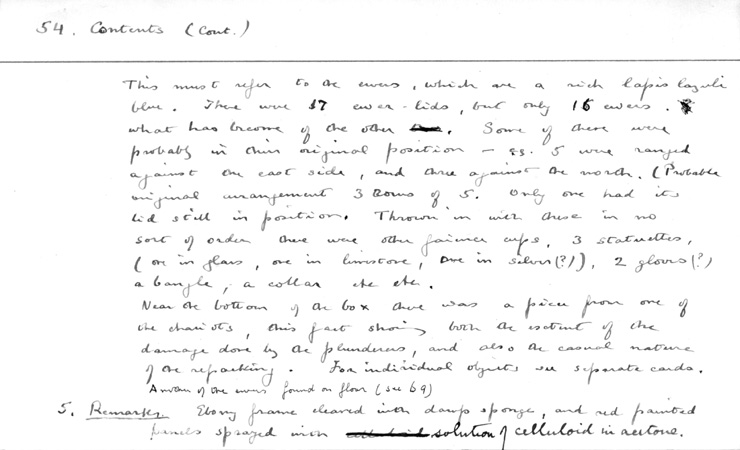 54. Contents (Cont.)
This must refer to the ewers, which are a rich lapis lazuli
blue. There were 17 ewer-lids, but only 15 ewers.
what has become of the other. Some of these were
probably in their original position – eg. 5 were ranged
against the east side, and three against the north. (Probable
original arrangement 3 rows of 5. Only one had its
lid still in position. Thrown in with these in no
sort of order there were other faience cups, 3 statuettes,
(one in glass, one in limestone, one in silver(?)), 2 gloves(?)
a bangle, a collar etc etc.
Near the bottom of the box there was a piece from one of
the chariots, this fact showing both the extent of the
damage done by the plunderers, and also the casual nature
of the repacking. For individual objects see separate cards.
Another of the ewers found on floor (see 69)
5. Remarks. Ebony frame cleaned with damp sponge, and red painted
panels sprayed with solution of celluloid in acetone.